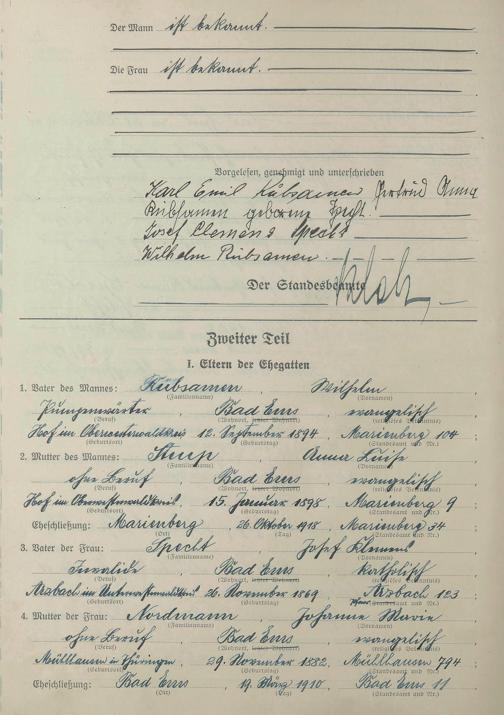 Der Mann ist bekannt.
Die Frau ist bekannt.
Vorgelesen, genehmigt und unterschrieben
Karl Emil Rübsamen Gertrud Anna
Rübsamen geborene Specht.
Josef Clemens Specht
Wilhelm Rübsamen.
Der Standesbeamte
Zweiter Teil
I. Eltern der Ehegatten
1. Vater des Mannes: Rübsamen, Wilhelm
(Familienname) (Vornamen)
Pumpenwärter Bad Ems evangelisch
(Beruf) (Wohnort, letzter Wohnort) (religiöses Bekenntnis)
Hof im Oberwesterwaldkreis 12. September 1894, Marienberg 104
(Geburtsort) (Geburtstag) (Standesamt und Nr.)
2. Mutter des Mannes: Anna Luise
(Familienname) (Vornamen)
ohne Beruf Bad Ems evangelisch
(Beruf) (Wohnort, letzter Wohnort) (religiöses Bekenntnis)
Hof im Oberwesterwaldkreis, 15. Januar 1895, Marienberg 9
(Geburtsort) (Geburtstag) (Standesamt und Nr.)
Eheschließung: Marienberg 26. Oktober 1918, Marienberg 34
(Ort) (Tag) (Standesamt und Nr.)
3. Vater der Frau: Specht Josef Klemens
(Familienname) (Vornamen)
Invalide Bad Ems katholisch
(Beruf) (Wohnort, letzter Wohnort) (religiöses Bekenntnis)
Arzbach im Unterwesterwaldkreis 26. November 1869 Arzbach 123
(Geburtsort) (Geburtstag) (Standesamt und Nr.)
4. Mutter der Frau: Nordmann, Johanne Marie
(Familienname) (Vornamen)
ohne Beruf Bad Ems evangelisch
(Beruf) (Wohnort, letzter Wohnort) (religiöses Bekenntnis)
Mühlhausen in Thüringen, 29. November 1882, Mühlhausen 794
(Geburtsort) (Geburtstag) (Standesamt und Nr.)
Eheschließung: Bad Ems 19. März 1910, Bad Ems 11
(Ort) (Tag) (Standesamt und Nr.)